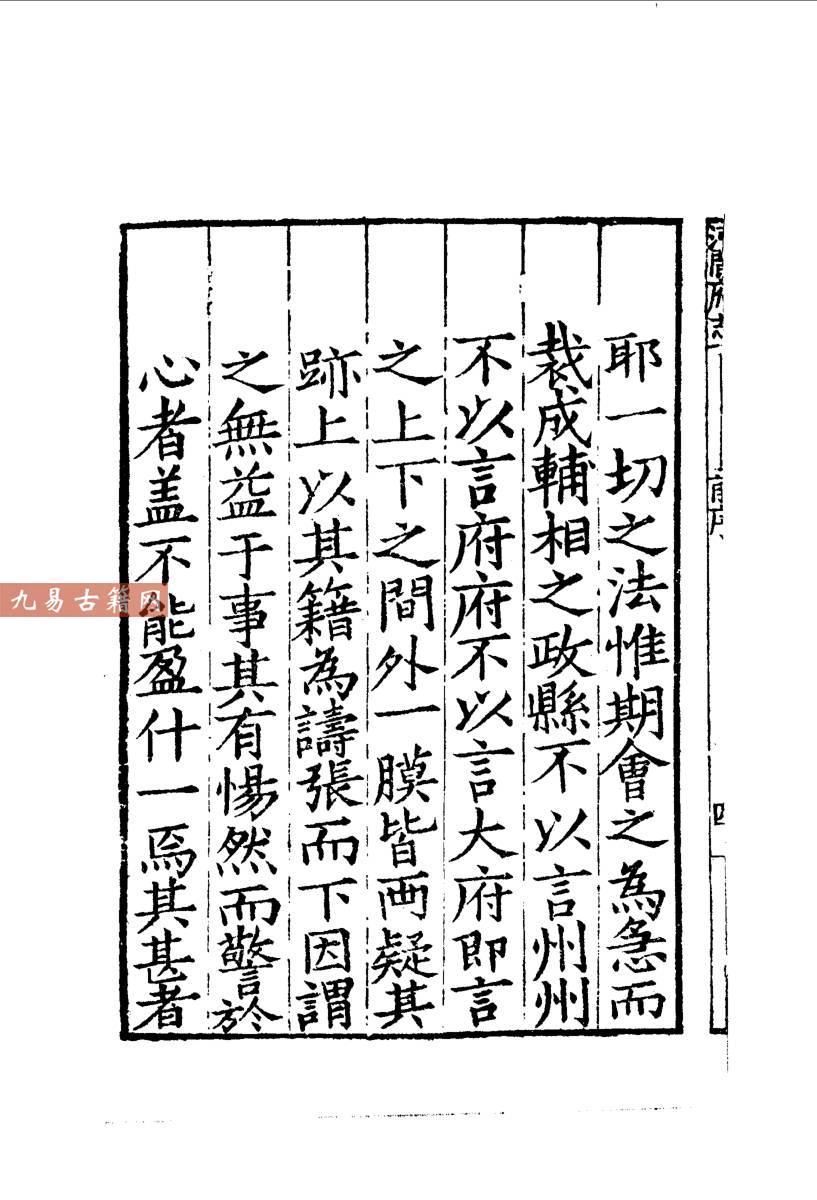 耶一切之法惟期會之為急而
裁成輔相之政縣不以言州州
不以言府府不以言大府即言
之上下之間外一膜皆兩疑其
跡上以其籍為譸張而下因謂
之無益于事其有惕然而警於
心者盖不能盈什一焉其甚者
河間府志
前序
四
九易古籍网